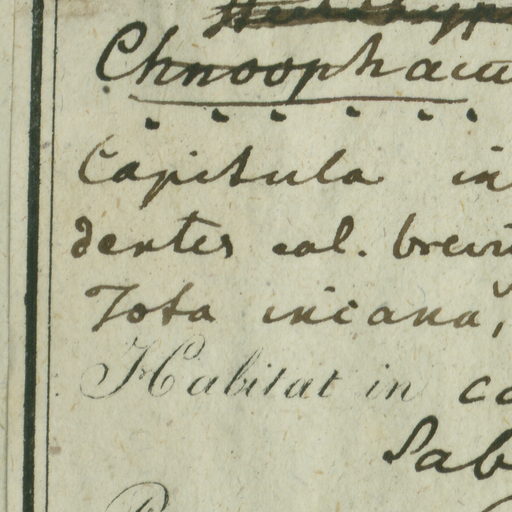 Chnoophacu
Capitula in
dentes cal. brevi
Tota incana,
Habitat in ca
Sab